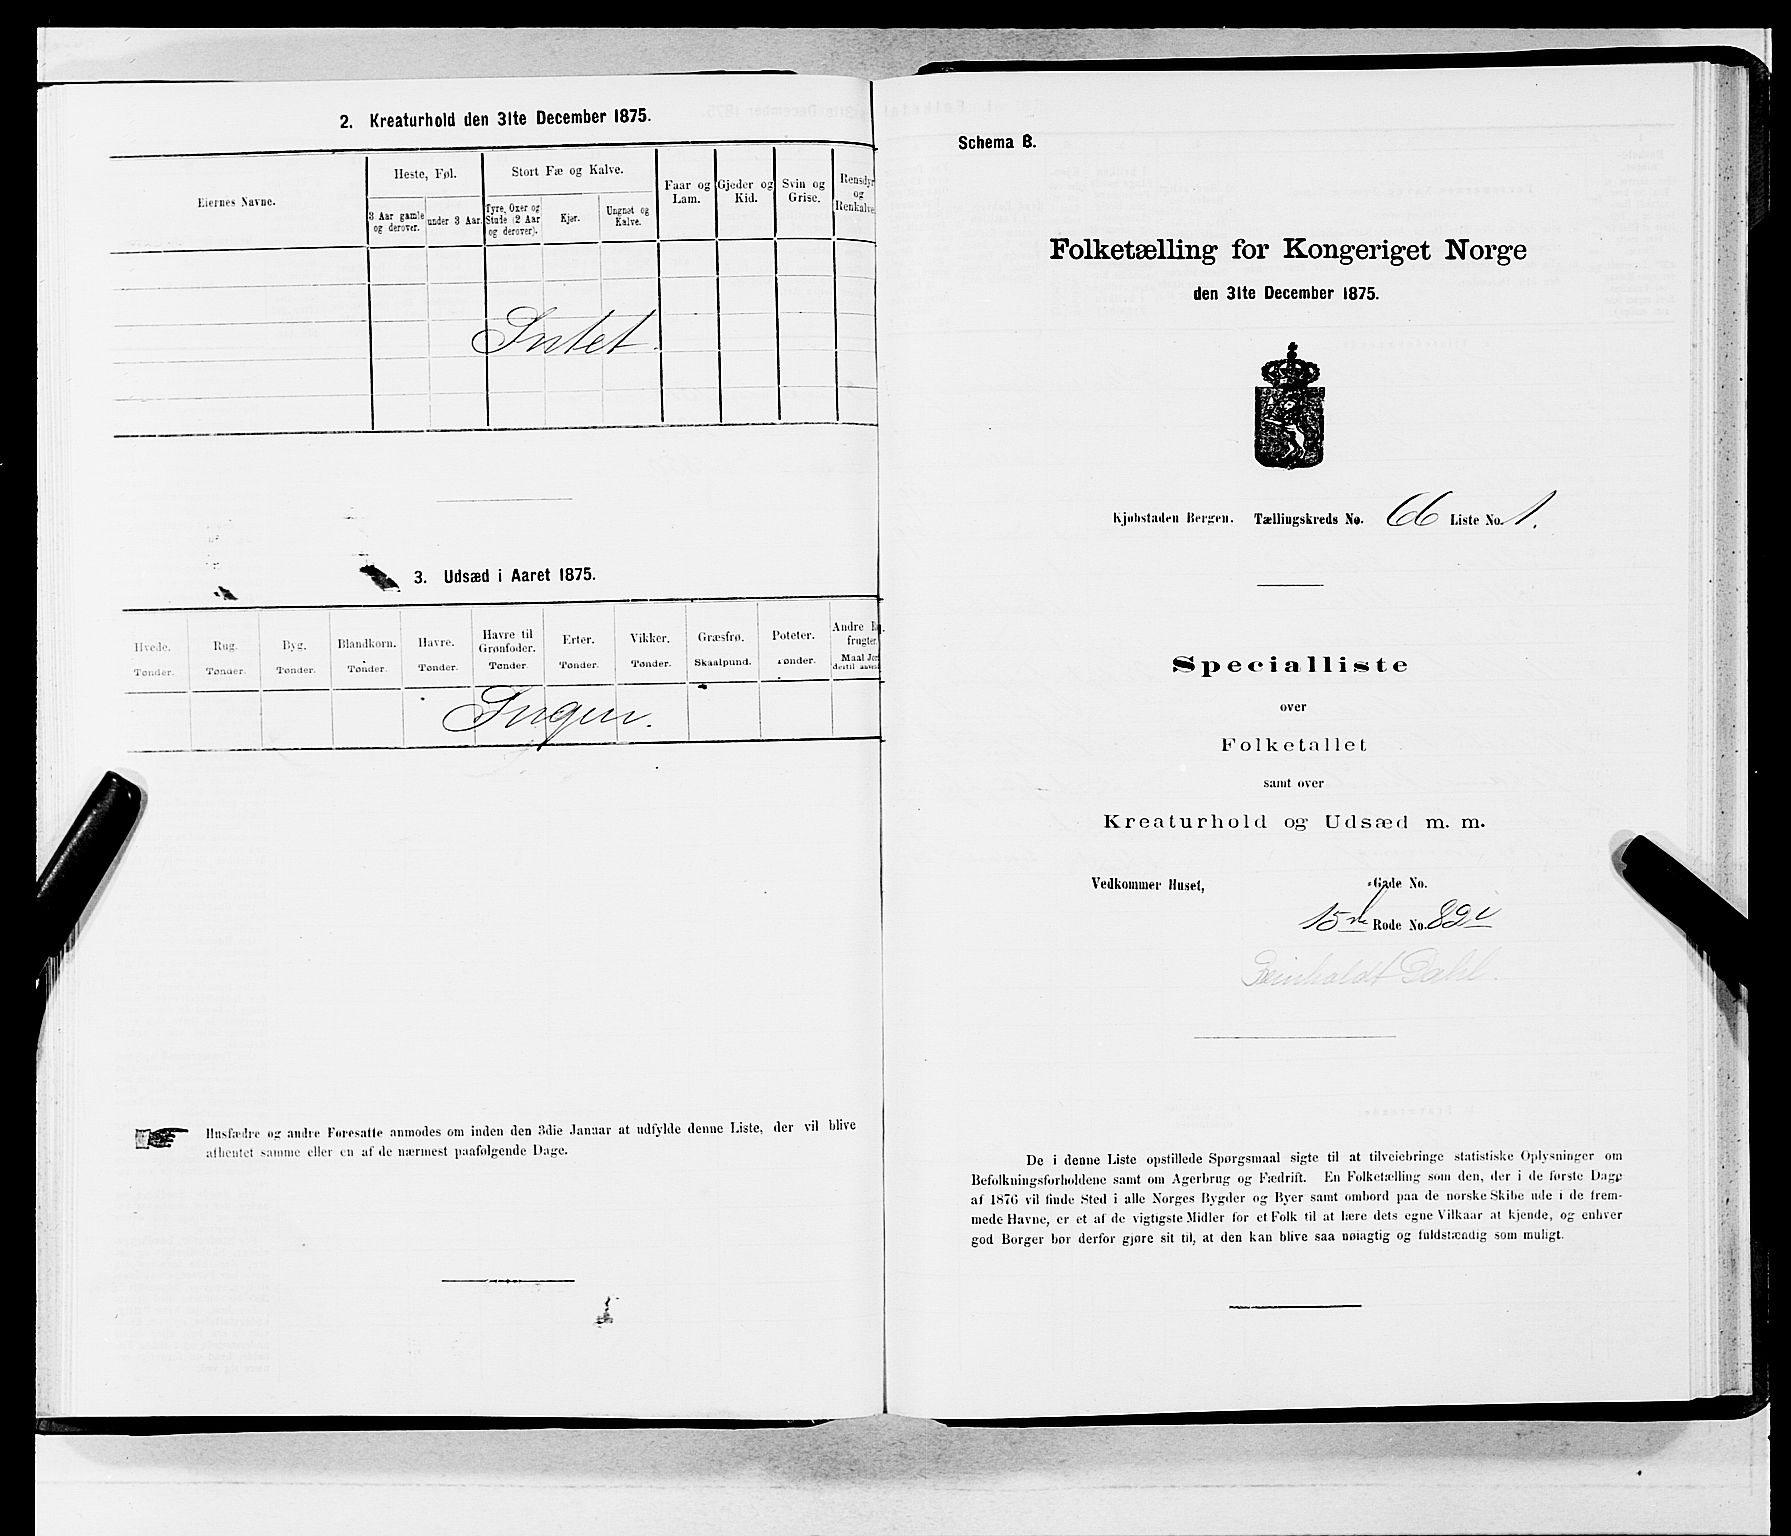 2. Kreaturhold den 31te December 1875.
Eiernes Navne.
Heste, Føl.
Stort Fæ og Kalve.
Faar og Lam.
Gjeder og Kid.
Svin og Grise.
Rensdyr og Renkalve.
3 Aar gamle og derover.
under 3 Aar.
Tyre, Oxer og Stude (2 Aar og derover).
Kjør.
Ungnøt og Kalve.
Intet.
3. Udsæd i Aaret 1875.
Hvede.
Rug.
Byg.
Blandkorn.
Havre.
Havre til Grønfoder.
Erter.
Vikker.
Græsfrø.
Poteter.
Andre
frugter.
Tønder.
Tønder.
Tønder.
Tønder.
Tønder.
Tønder.
Tønder.
Tønder.
Skaalpund.
Tønder.
Maal
Ingen.
Husfædre og andre Foresatte anmodes om inden den 3die Januar at udfylde denne Liste, der vil blive
afhentet samme eller en af de nærmest paafølgende Dage.
Schema B.
Folketælling for Kongeriget Norge
den 31te December 1875.
Kjøbstaden Bergen. Tællingskreds No. 66 Liste No. 1.
Specialliste
over
Folketallet
samt over
Kreaturhold og Udsæd m. m.
Vedkommer Huset, Gade No.
15de Rode No. 82i
Reinholdt Dahl.
De i denne Liste opstillede Spørgsmaal sigte til at tilveiebringe statistiske Oplysninger om
Befolkningsforholdene samt om Agerbrug og Fædrift. En Folketælling som den, der i de første Dage
af 1876 vil finde Sted i alle Norges Bygder og Byer samt ombord paa de norske Skibe ude i de frem-
mede Havne, er et af de vigtigste Midler for et Folk til at lære dets egne Vilkaar at kjende, og enhver
god Borger bør derfor gjøre sit til, at den kan blive saa nøiagtig og fuldstændig som muligt.